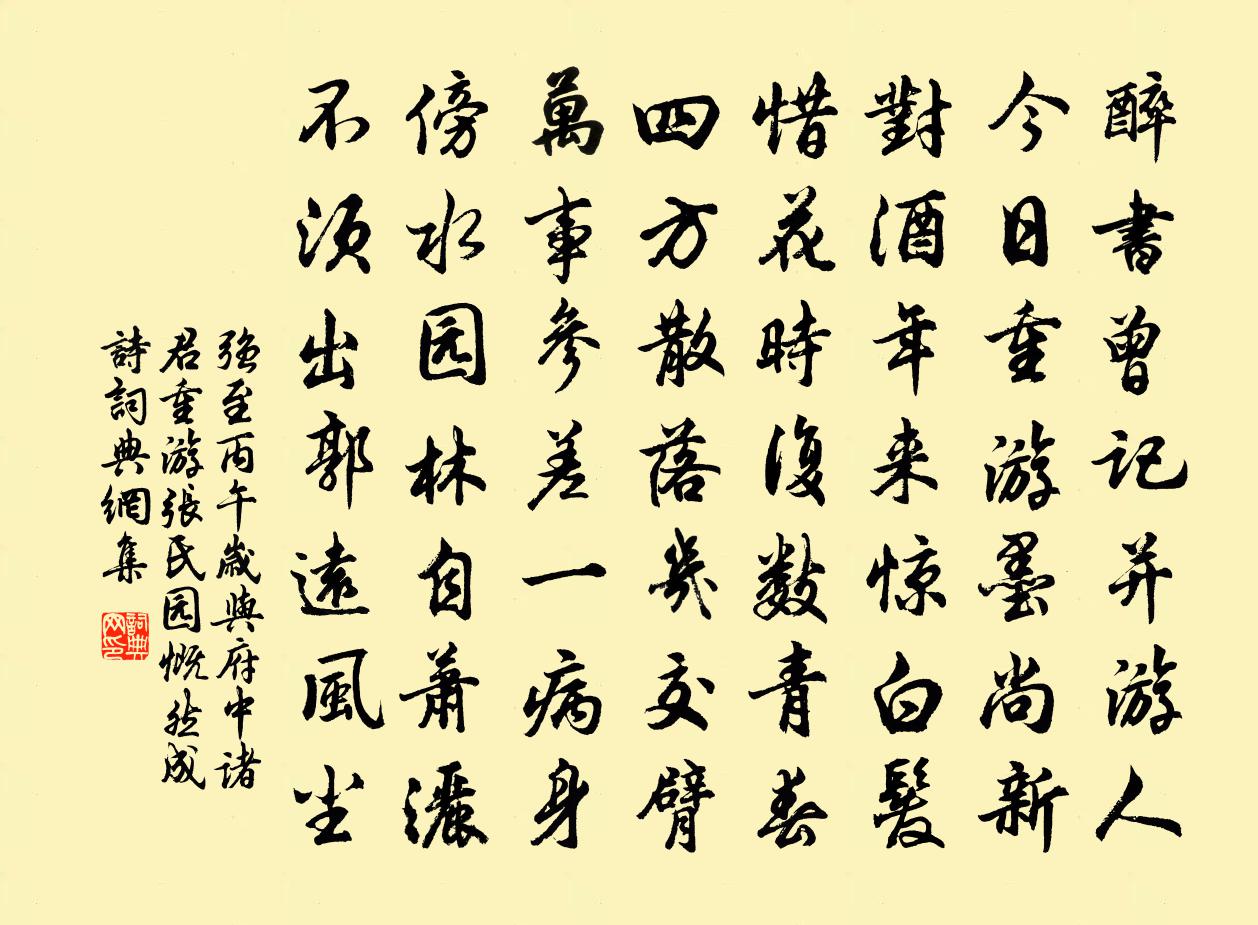 醉書曾記并游人
今日重游墨尚新
對酒年来惊白髮
惜花時復數青春
四方散落幾交臂
萬事參差一病身
傍水园林自蕭灑
不須出郭遠風尘
強至丙午歲與府中諸
君重游張氏园慨然成
詩詞典網集
詞典网印